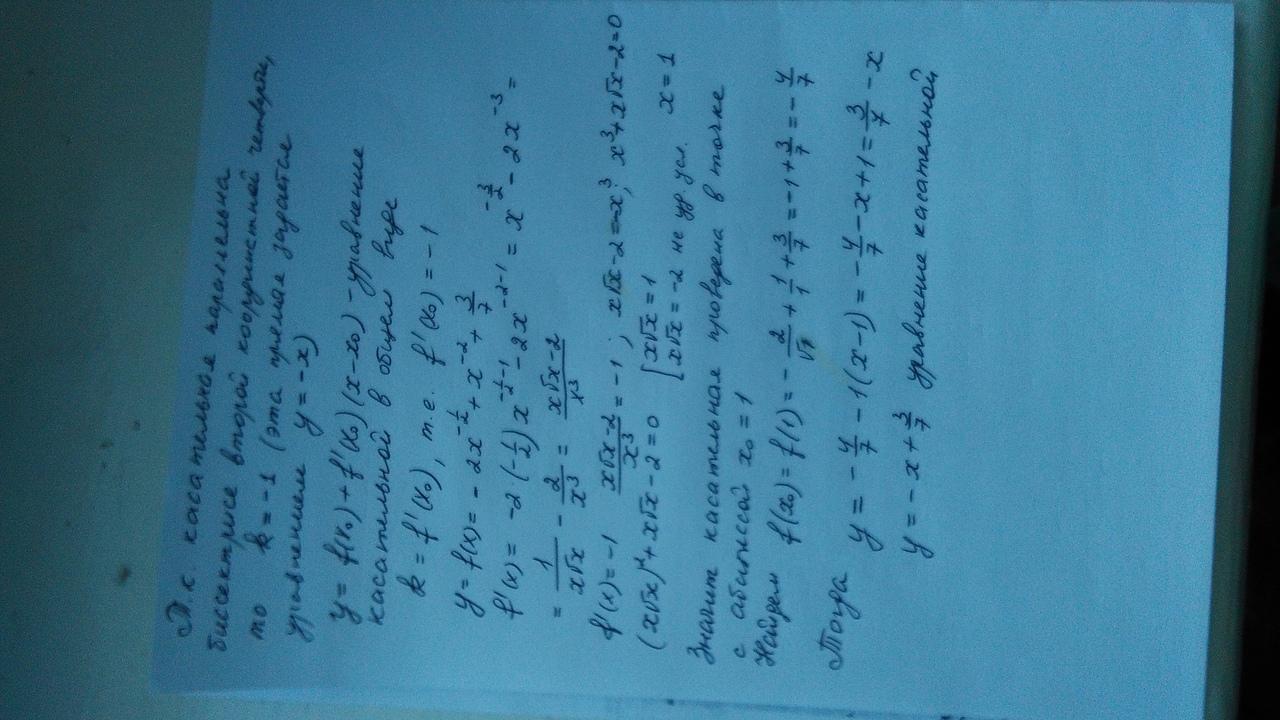 Т.к. касательная паралельна
биссектрисе второй координатной четверти,
то k = -1 (эта прямая задается
уравнением y = -x)
y = f(x₀) + f'(x₀)(x-x₀) - уравнение
касательной в общем виде
k = f'(x₀), т.е. f'(x₀) = -1
y = f(x) = -2x^{-1/2} + x^{-2} + 3/7
f'(x) = -2·(-1/2)x^{-1/2-1} - 2x^{-2-1} = x^{-3/2} - 2x^{-3} =
= 1/(x√x) - 2/x³ = (x√x-2)/x³
f'(x) = -1 (x√x-2)/x³ = -1; x√x-2 = -x³; x³+x√x-2=0
(x√x)²+x√x-2=0 [x√x=1
[x√x=-2 не уд. усл. x=1
Значит касательная проведена в точке
с абсциссой x₀ = 1
Найдем f(x₀) = f(1) = -2/√1 + 1/1 + 3/7 = -1 + 3/7 = -4/7
Тогда y = -4/7 - 1(x-1) = -4/7 - x + 1 = 3/7 - x
y = -x + 3/7 уравнение касательной